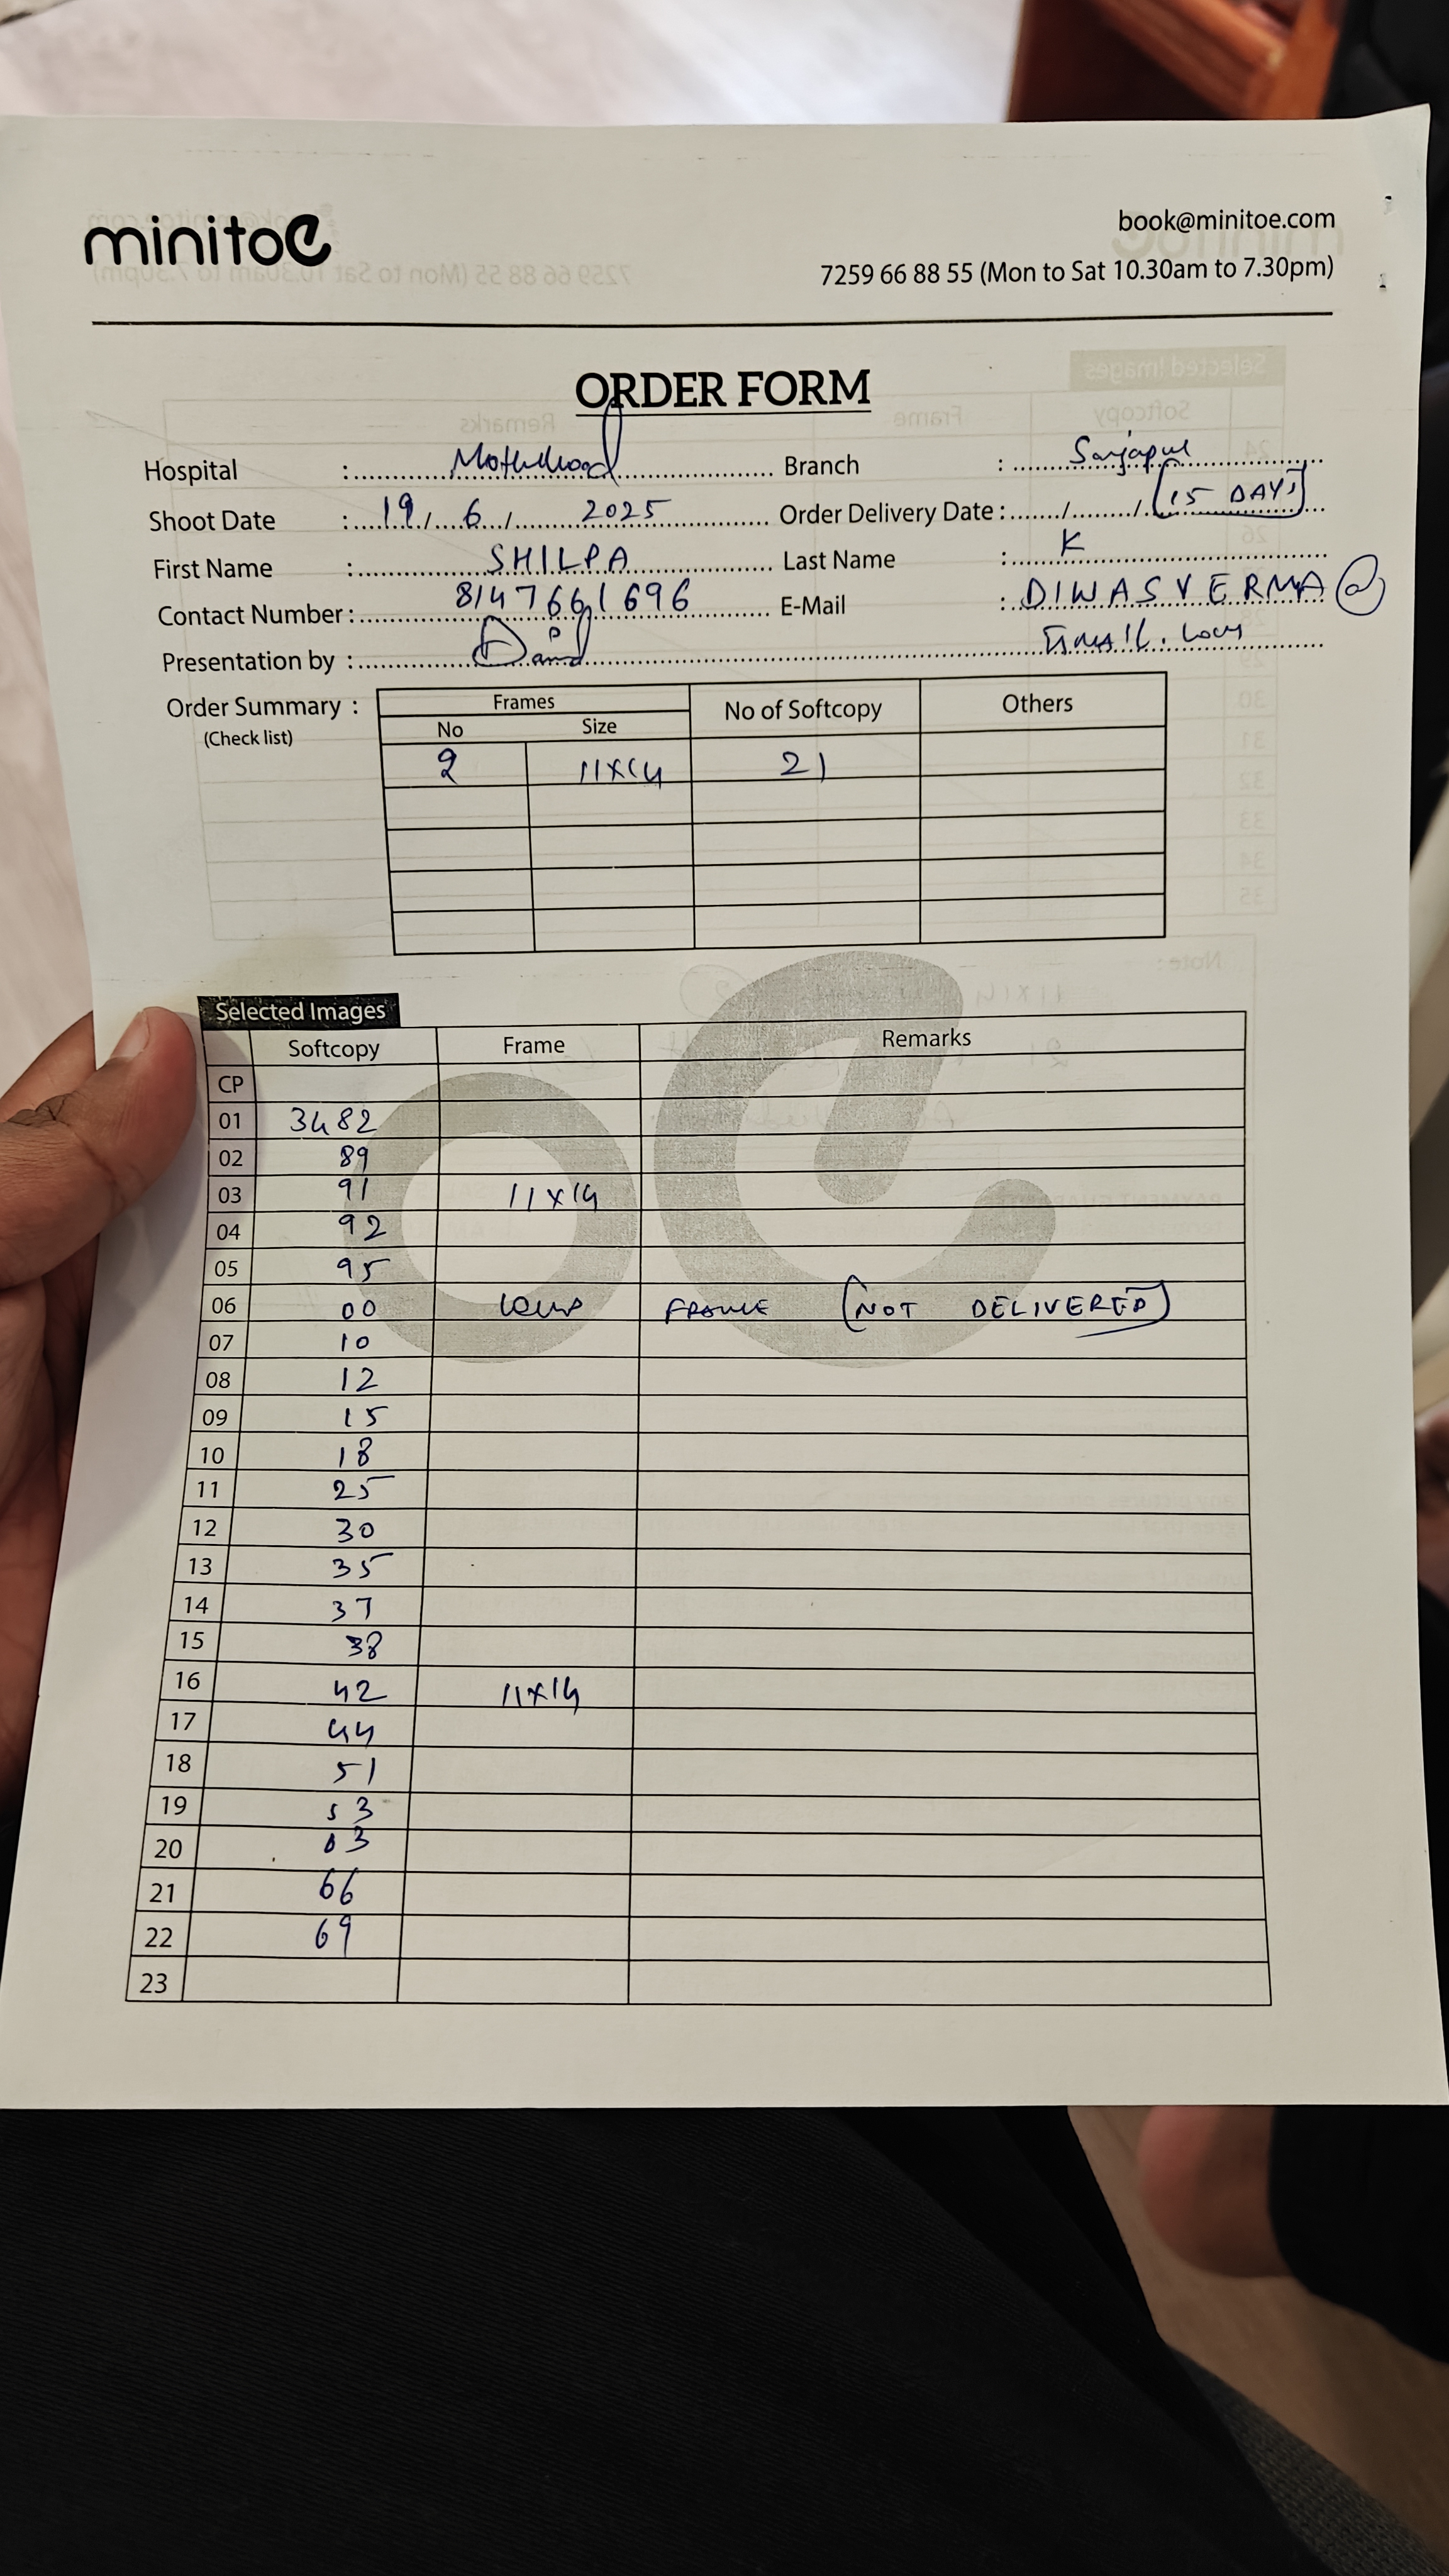 minitoe
book@minitoe.com
7259 66 88 55 (Mon to Sat 10.30am to 7.30pm)
ORDER FORM
Hospital : Motherhood Branch : Sarjapur
Shoot Date : 19/6/2025 Order Delivery Date : / / (15 DAYS)
First Name : SHILPA Last Name : K
Contact Number : 8147661696 E-Mail : DIWASVERMA@
Presentation by : Gmail.com
Order Summary : Frames No of Softcopy Others
(Check list) No Size
2 11x14 21
Selected Images
Softcopy Frame Remarks
CP
01 3482
02 89
03 91 11x14
04 92
05 95
06 00 FRAME (NOT DELIVERED)
07 10
08 12
09 15
10 18
11 25
12 30
13 35
14 37
15 38
16 42 11x14
17 44
18 51
19 53
20 63
21 66
22 69
23